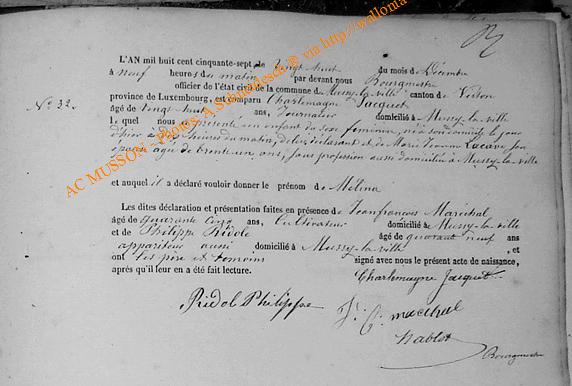 N° 32.
L'AN mil huit cent cinquante-sept, le vingt huit du mois de Décembre
à neuf heures du matin par devant nous Bourgmestre
officier de l'état civil de la commune de Mussy-la-ville canton de Virton
province de Luxembourg, est comparu Charlemagne Jacquet
âgé de vingt huit ans, Journalier domicilié à Mussy-la-ville
lequel nous a présenté un enfant du sexe féminin, né à son domicile le jour
d'hier à heures du matin, de lui déclarant et de Marie Jeanne Lacave son
épouse âgé de trente un ans, sans profession aussi domiciliée à Mussy-la-ville
et auquel il a déclaré vouloir donner le prénom de Mélina
Les dites déclaration et présentation faites en présence de Jeanfrancois Maréchal
âgé de quarante cinq ans, Cultivateur domicilié à Mussy-la-ville
et de Philippe Ridole âgé de quarant neuf ans
appariteur aussi domicilié à Mussy-la-ville, et
ont les père et témoins signé avec nous le présent acte de naissance,
après qu'il leur en a été fait lecture.
Charlemagne Jacquet
Ridol Philippe
Nablot
Bourgmestre
AC MUSSON - Photos: A. Schmedesch ® via http://wallonia